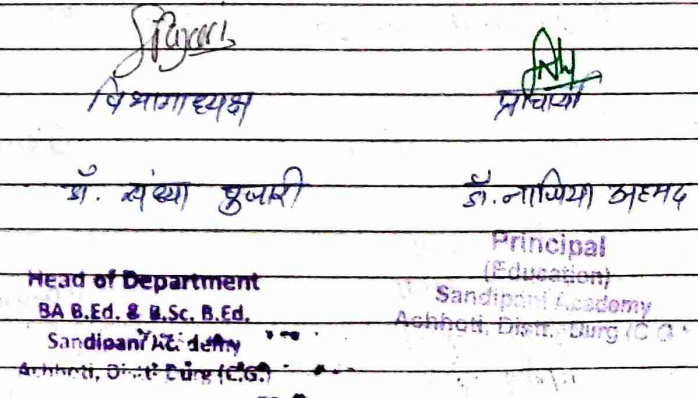 विभागाध्यक्ष
डॉ. संध्या पुजारी
Head of Department
BA B.Ed. & B.Sc. B.Ed.
Sandipani Academy
Achhoti, Distt. Durg (C.G.)
प्राचार्या
डॉ. नाजिया अहमद
Principal
(Education)
Sandipani Academy
Achhoti, Distt. Durg (C.G.